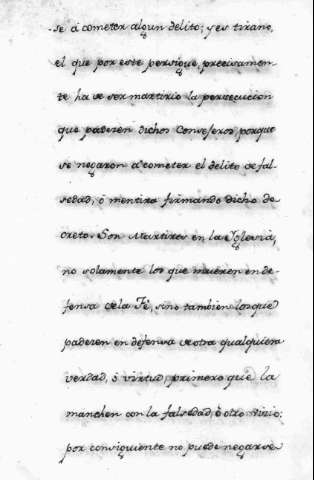 se á cometer algun delito; y es tirano,
el que por este persigue, precisamen
te ha de ser martirio la persecucion
que padecen dichos Consejeros, porque
se negaron a cometer el delito de fal-
sedad, ó mentira firmando dicho de
creto. Son Martires en la Yglesia,
no solamente los que mueren en de-
fensa de la Fé, sino tambien los que
padecen en defensa de otra qualquiera
verdad, ó virtud, primero que la
manchen con la falsedad, ó otro vicio;
por consiguiente no puede negarse